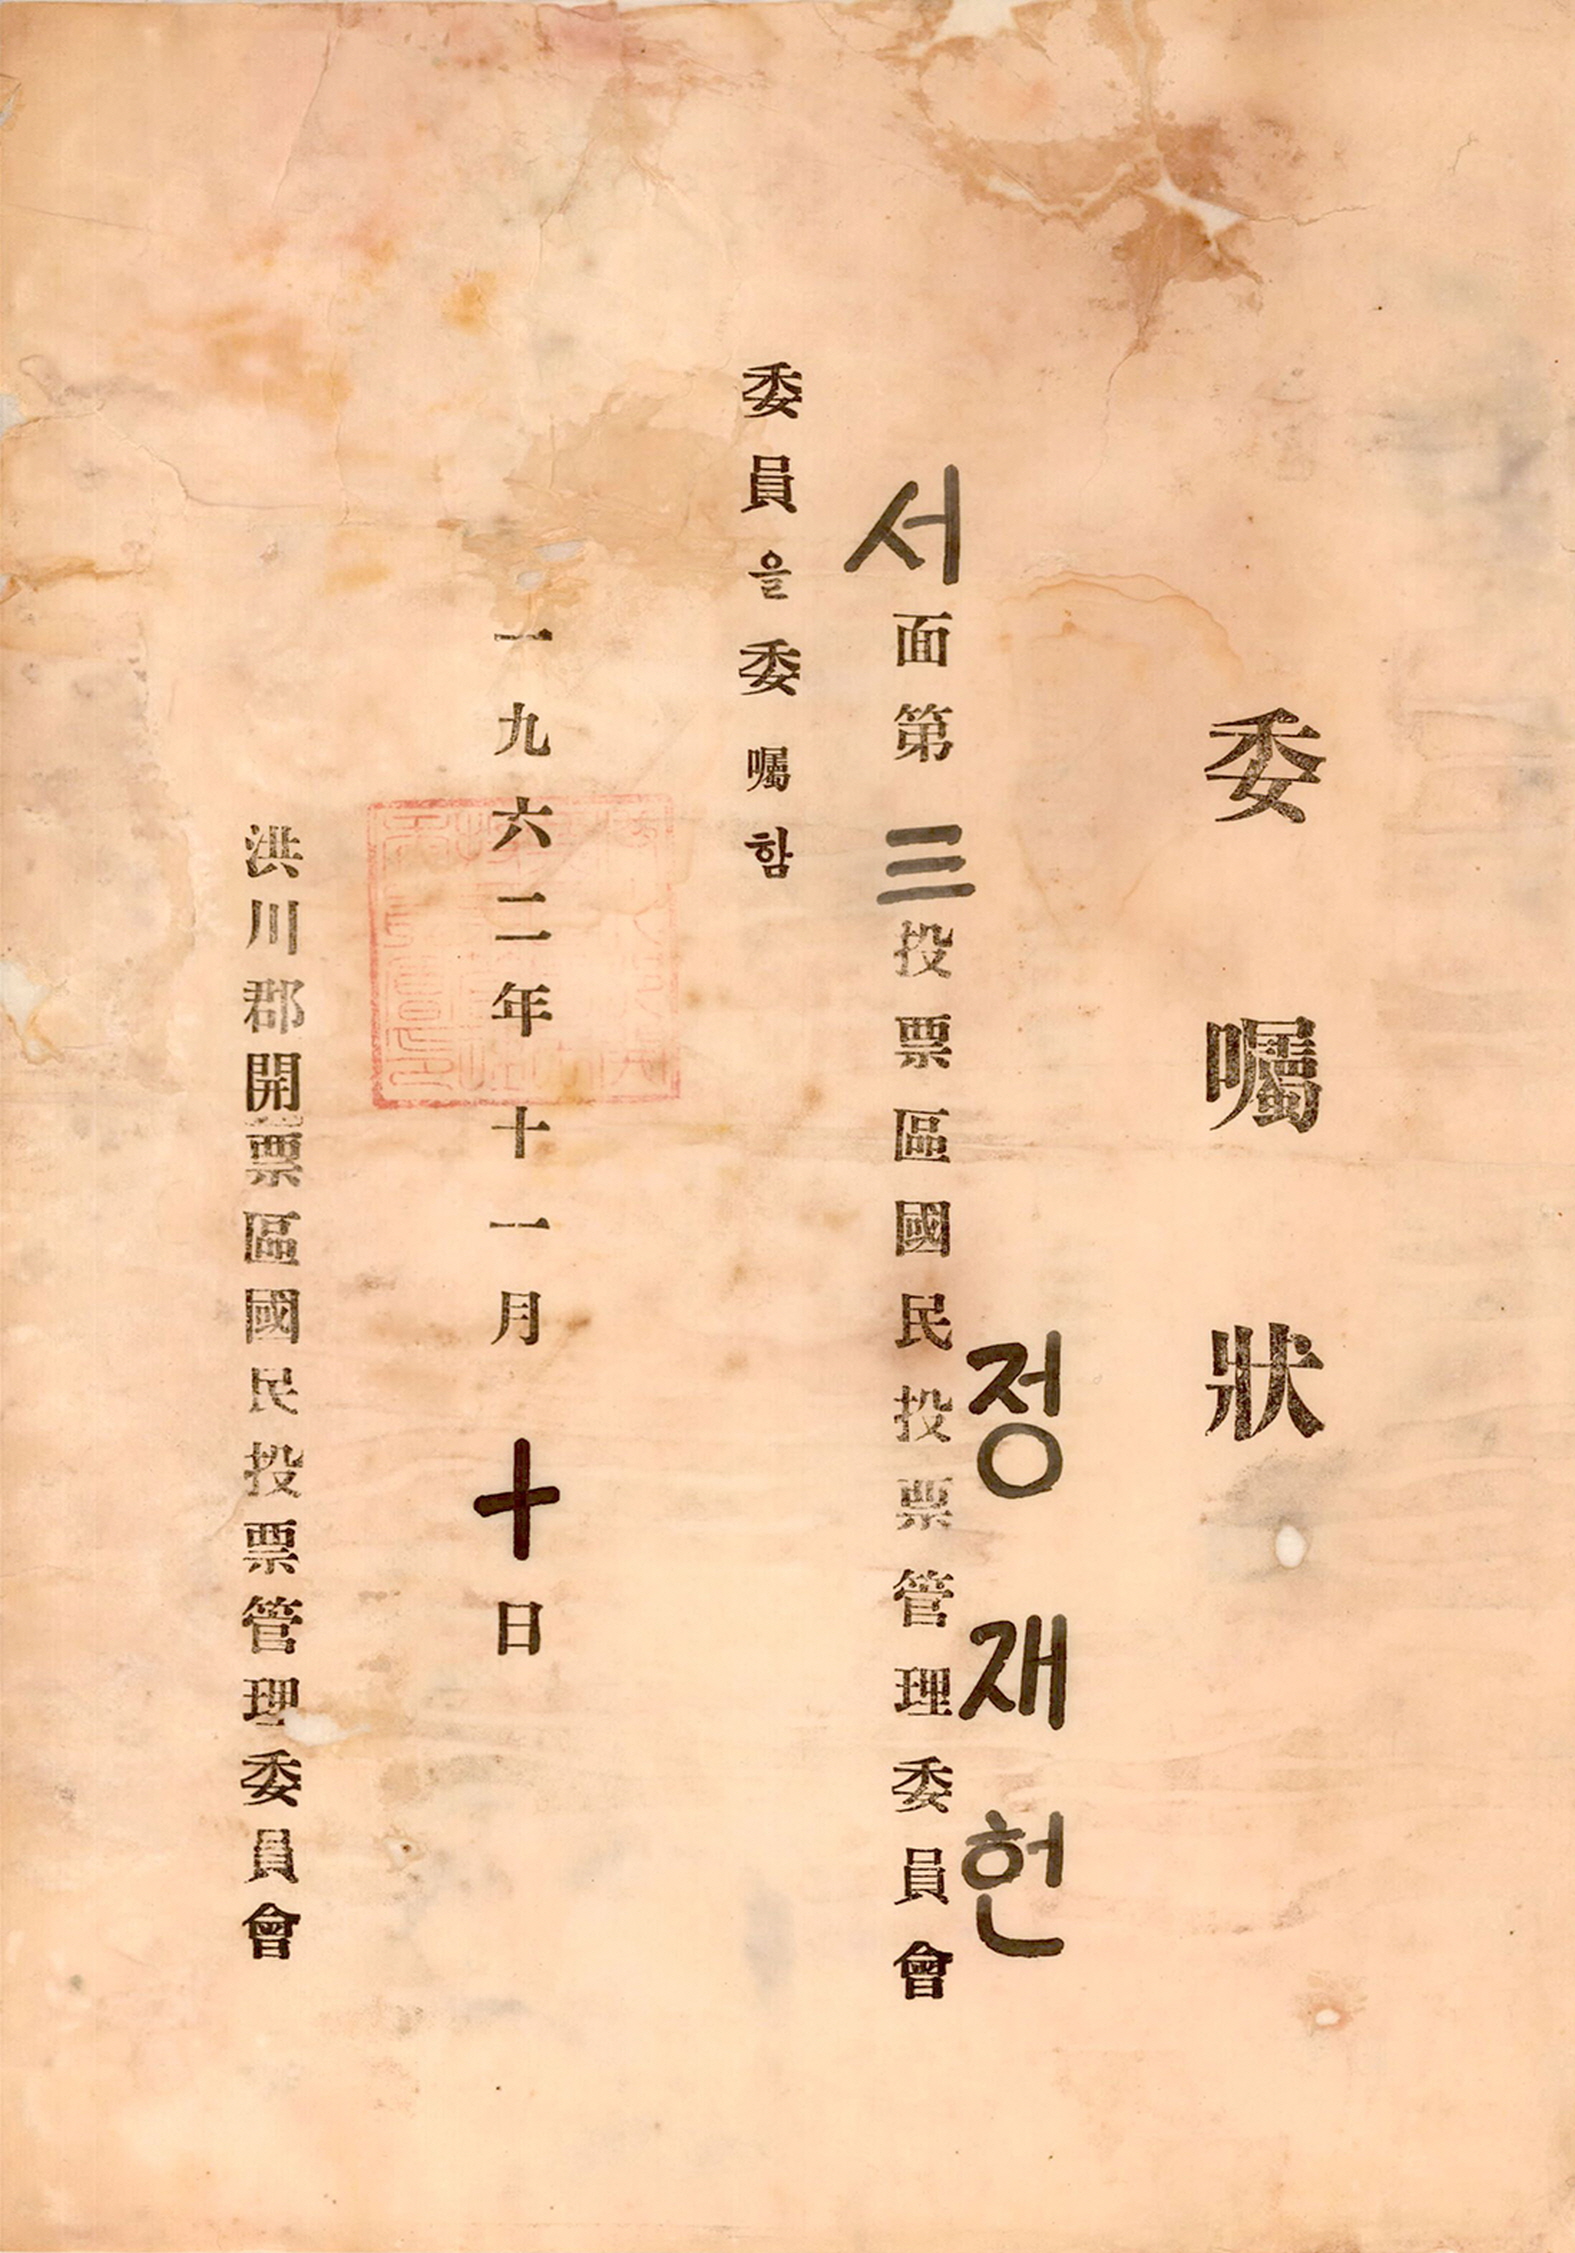 委囑狀
정재헌
서面第三投票區國民投票管理委員會
委員을委囑함
一九六二年十一月十日
洪川郡開票區國民投票管理委員會